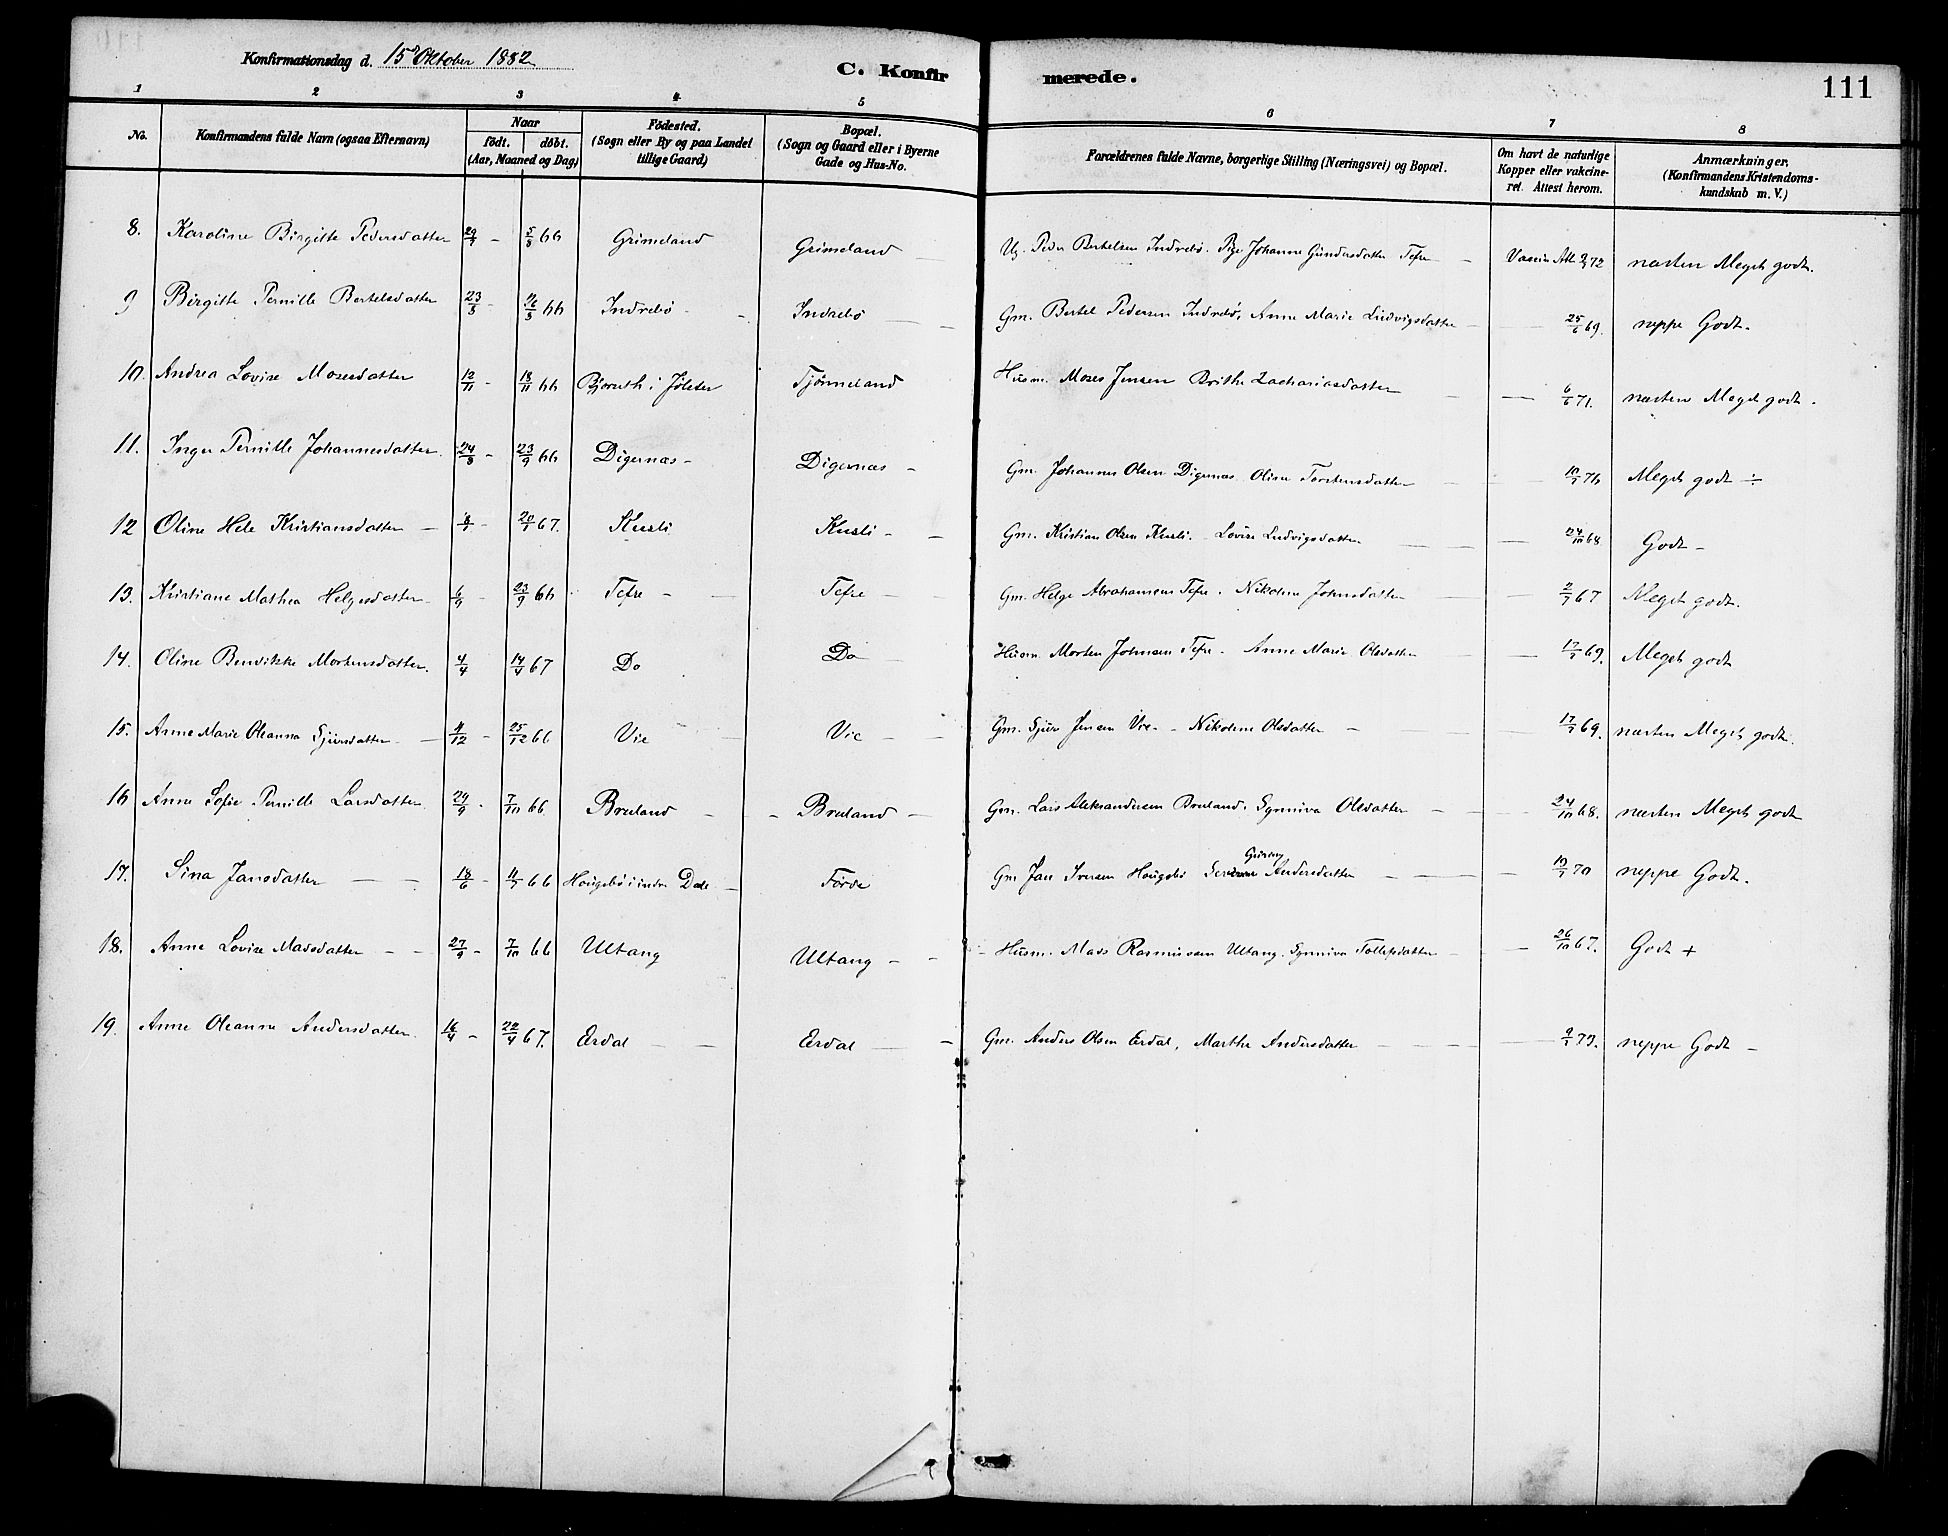 Konfirmationsdag d. 15 Oktober 1882
C. Konfirmerede.
111
1 2 3 4 5 6 7 8
No. Konfirmandens fulde Navn (ogsaa Efternavn) Naar født. døbt. (Aar, Maaned og Dag) Fødested. (Sogn eller By og paa Landet tillige Gaard) Bopæl. (Sogn og Gaard eller i Byerne Gade og Hus-No. Forældrenes fulde Navne, borgerlige Stilling (Næringsvei) og Bopæl. Om havt de naturlige Kopper eller vakcineret. Attest herom. Anmærkninger. (Konfirmandens Kristendomskundskab m. V.)
8. Karoline Birgitte Pedersdatter 5/8 66 Grimeland Grimeland Ug. Peder Bertelsen Indrebø. Pige Johanne Gundersdatter Tefre Vaccin. Att. 72 næsten Meget godt.
9 Birgitte Pernille Bertelsdatter 23/3 - 66 Indrebø - Indrebø Gm. Bertel Pedersen Indrebø, Anne Marie Ludvigsdatter 25/6 69. neppe Godt.
10. Andrea Lovise Mosesdatter 12/11 - 18/11 66 i Jølster Tjønneland Husm. Moses Jensen Brithe Zachariasdatter 6/6 71. næsten Meget godt.
11. Inger Pernille Johannesdatter 24/8 - 23/9 66 Digernæs - Digernæs - Gm. Johannes Olsen Digernæs Oline Torstensdatter 76 Meget godt ÷
12 Oline Hele Kristiansdatter - 8/1 - 20/1 67. Kusli Kusli - Gm. Kristian Olsen Kusli. - Lovise Ludvigsdatter 24/10 68 Godt -
13. Kristiane Mathea Helgesdatter 6/9 - 23/9 66 Tefre - Tefre - Gm. Helge Abrahamsen Tefre. Nikoline Johnsdatter 2/7 67 Meget godt.
14. Oline Benvikke Mortensdatter. 4/4 14/4 67 Do Do Husm. Morten Johnsen Tefre. Anne Marie Olsdatter 17/7 69. Meget godt
15. Anne Marie Oleanna Sjursdatter 4/12 - 25/12 66 Vie Vie - Gm. Sjur Jensen Vie - Nikoline Olsdatter - 17/7 69. næsten Meget godt.
16 Anne Sofie Pernille Larsdatter 29/9 - 7/10 66 Bruland - Bruland - Gm. Lars Aleksandersen Bruland. Synniva Olsdatter 24/10 68. næsten Meget godt
17. Sina Jansdatter 18/6 - 11/7 66 Hougebø i indre Dale - Førde Gm Jan Iversen Hougebø Guring Andersdatter 70 neppe Godt.
18. Anne Lovise Madsdatter - - 27/9 - 7/10 66 Ultang Ultang - Husm. Mads Rasmussen Ultang. Synniva Tollefsdatter 26/10 67. Godt +
19. Anne Oleanna Andersdatter 16/4 - 22/4 67. Erdal Erdal Gm. Anders Olsen Erdal, Marthe Andersdatter 73. neppe Godt -